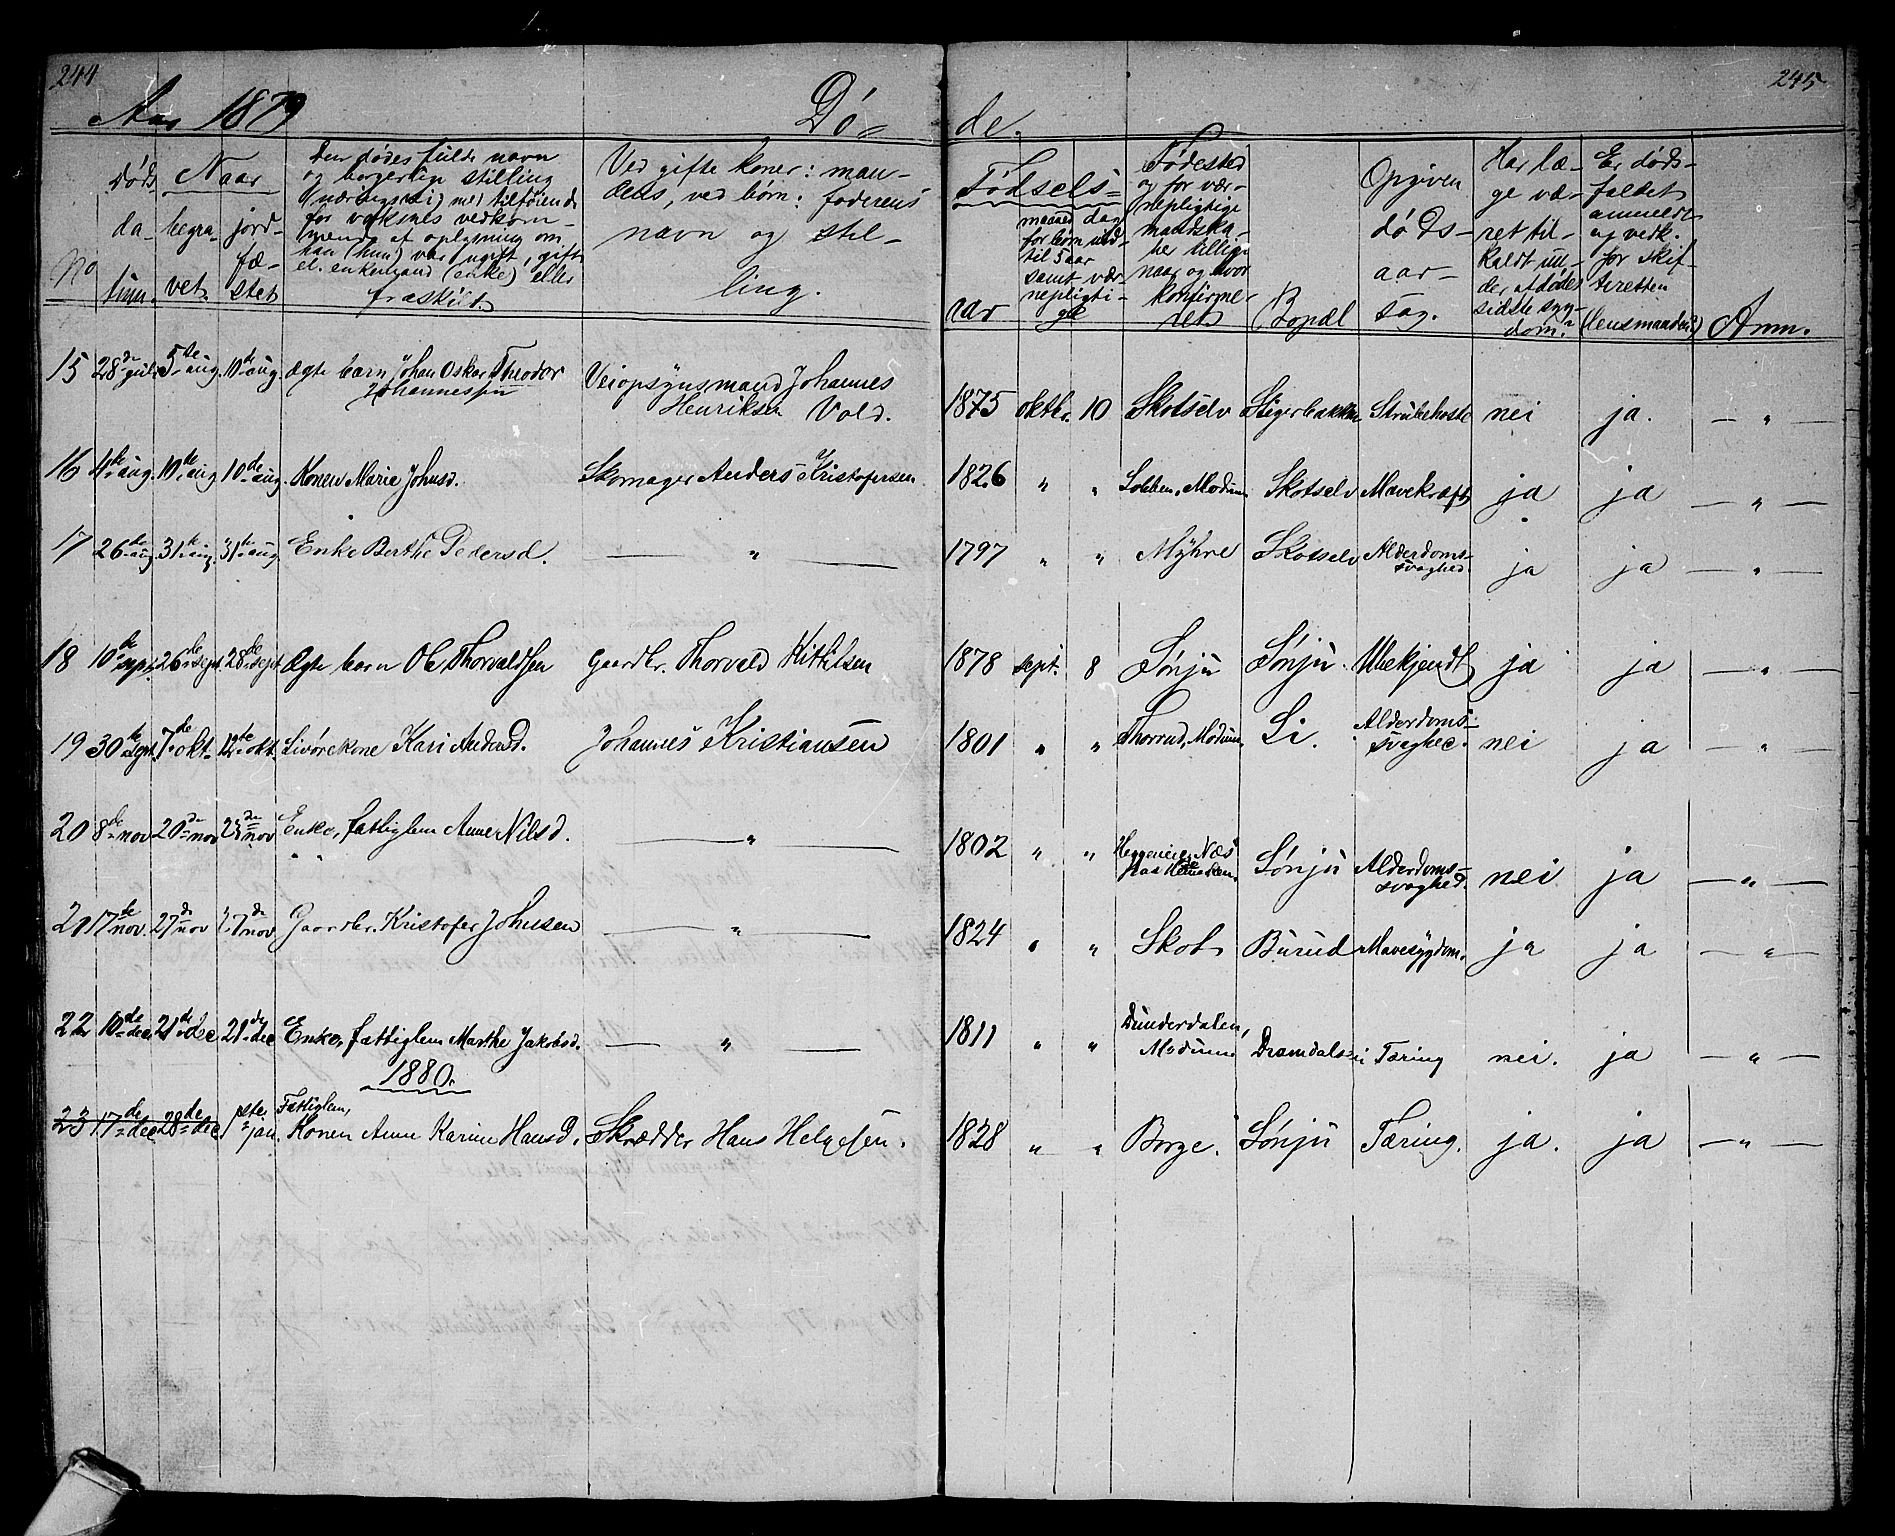 244
245
Aar 1879
Dø-
de.
No
Døds
da-
tum.
Naar
begra-
vet.
jord-
fæ-
stet
Den dødes fulde navn
og borgerlig stilling
(næringsvei) med tilføiende
for voksnes vedkom-
mende af oplysning om
han (hun) var ugift, gift
el. enkemand (enke) eller
fraskilt
Ved gifte koner: man-
dens, ved børn: faderens
navn og stil-
ling.
Fødsels-
aar
maaned dag
for børn ind-
til 5 aar
samt vær-
nepligti-
ge
Fødested
og for vær-
nepligtige
mandska-
ber tillige
naar og hvor
konfirme-
ret
Bopæl
Opgiven
døds-
aar-
sag.
Har læ-
ge væ-
ret til-
kaldt un-
der afdødes
sidste syg-
dom?
Er døds-
faldet
anmeldt
og vedk.
for skif-
teretten
(lensmanden?)
Anm.
15 28de juli 5te aug. 10de aug. Ægte barn Johan Oskar Theodor Veiopsynsmand Johannes
Johannessen Henriksen Vold. 1875 oktbr. 10 Skotselv Stigerbakken Strubehoste nei ja. — " —
16 4de aug. 10de aug 10de aug. Konen Maria Johnsd. Skomager Anders Kristofersen 1826 " " Lobben, Modum Skotselv Mavekræft ja ja — " —
17 26de aug. 31te aug. 31te aug Enke Berthe Pedersd. — " — 1797 " " Myhre Skotselv Alderdoms-
svaghed. ja ja — " —
18 10de sept. 26de sept. 28de sept Ægte barn Ole Thorvaldsen Gaardbr. Thorvald Kittilsen 1878 sept. 8 Sønju Sønju Ubekjendt ja ja — " —
19 30te sept. 7de okt. 12te okt. Livørekone Kari Andersd. Johannes Kristiansen 1801 " " Thorrud, Modum Li. Alderdoms-
svaghed. nei ja — " —
20 8de nov 20de nov 23de nov Enke, fattiglem Anne Nilsd. — " — 1802 " " Næs
Sønju Alderdoms-
svaghed. nei ja — " —
21 17de nov. 27de nov 27de nov Gaardbr. Kristofer Johnsen — " — 1824 " " Skot Burud Mavesygdom. ja ja — " —
22 10de dec 21de dec 21de dec Enke, fattiglem Marthe Jakobsd. — " — 1811 " " Dunderdalen,
Modum Dramdalsei Tæring nei. ja — " —
1880.
Fattiglem,
23 17de dec 28de dec 1ste jan. Konen Anne Karine Hansd. Skrædder Hans Helgesen. 1828 " " Borge. Sønju Tæring. ja. ja — " —